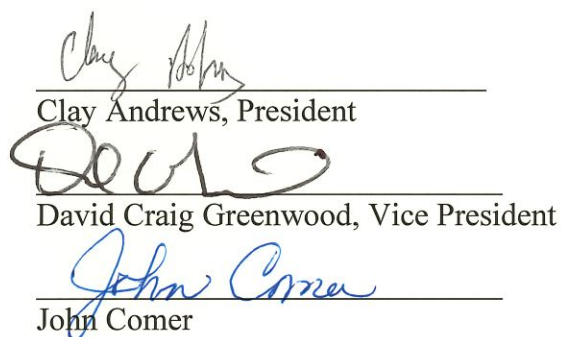 Clay
Clay Andrews, President
David Craig Greenwood, Vice President
John Comer
John Comer